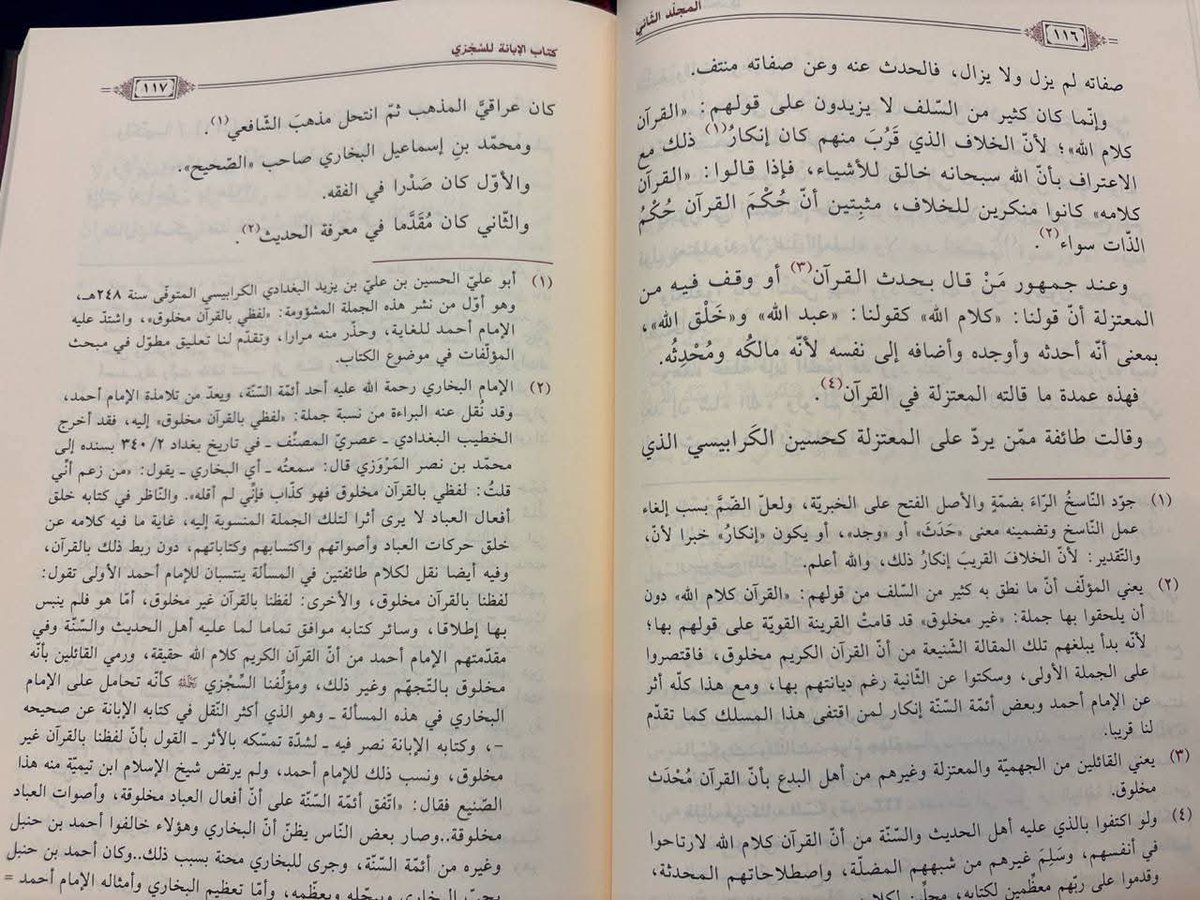 المجلد الثاني
١١٦
صفاته لم يزل ولا يزال، فالحدث عنه وعن صفاته منتف.
وإنّما كان كثير من السّلف لا يزيدون على قولهم: «القرآن
كلام الله»؛ لأنّ الخلاف الذي قَرُبَ منهم كان إنكارُ(١) ذلك مع
الاعتراف بأنّ الله سبحانه خالق للأشياء، فإذا قالوا: «القرآن
كلامه» كانوا منكرين للخلاف، مثبِتين أنّ حُكْمَ القرآن حُكْمُ
الذّات سواء(٢).
وعند جمهور مَنْ قال بحدث القرآن(٣) أو وقف فيه من
المعتزلة أنّ قولنا: «كلام الله» كقولنا: «عبد الله» و«خَلْق الله»،
بمعنى أنّه أحدثه وأوجده وأضافه إلى نفسه لأنّه مالكُه ومُحْدِثُه.
فهذه عمدة ما قالته المعتزلة في القرآن(٤).
وقالت طائفة ممّن يردّ على المعتزلة كحسين الكَرابيسي الذي
(١) جوّد النّاسخُ الرّاءَ بضمّةٍ والأصل الفتح على الخبريّة، ولعلّ الضّمَّ بسب إلغاء
عمل النّاسخ وتضمينه معنى «حَدَثَ» أو «وجد»، أو يكون «إنكارُ» خبرا لأنّ،
والتّقدير: لأنّ الخلافَ القريبَ إنكارُ ذلك، والله أعلم.
(٢) يعني المؤلّف أنّ ما نطق به كثير من السّلف من قولهم: «القرآن كلام الله» دون
أن يلحقوا بها جملة: «غير مخلوق» قد قامتْ القرينة القويّة على قولهم بها؛
لأنّه بدأ يبلغهم تلك المقالة الشّنيعة من أنّ القرآن الكريم مخلوق، فاقتصروا
على الجملة الأولى، وسكتوا عن الثّانية رغم ديانتهم بها، ومع هذا كلّه أثر
عن الإمام أحمد وبعض أئمّة السّنّة إنكار لمن اقتفى هذا المسلك كما تقدّم
لنا قريبا.
(٣) يعني القائلين من الجهميّة والمعتزلة وغيرهم من أهل البدع بأنّ القرآن مُحْدَث
مخلوق.
(٤) ولو اكتفوا بالذي عليه أهل الحديث والسّنّة من أنّ القرآن كلام الله لارتاحوا
في أنفسهم، وسَلِمَ غيرهم من شبههم المضلّة، واصطلاحاتهم المحدثة،
وقدموا على ربّهم معظّمين لكتابه،
كتاب الإبانة للسّجْزي
١١٧
كان عراقيَّ المذهب ثمّ انتحل مذهبَ الشّافعي(١).
ومحمّد بنِ إسماعيل البخاري صاحب «الصّحيح».
والأوّل كان صَدْرا في الفقه.
والثّاني كان مُقَدَّما في معرفة الحديث(٢).
(١) أبو عليّ الحسين بن عليّ بن يزيد البغدادي الكرابيسي المتوفّى سنة ٢٤٨هـ،
وهو أوّل من نشر هذه الجملة المشؤومة: «لفظي بالقرآن مخلوق»، واشتدّ عليه
الإمام أحمد للغاية، وحذّر منه مرارا، وتقدّم لنا تعليق مطوّل في مبحث
المؤلّفات في موضوع الكتاب.
(٢) الإمام البخاري رحمة الله عليه أحد أئمّة السّنّة، ويعدّ من تلامذة الإمام أحمد،
وقد نُقل عنه البراءة من نسبة جملة: «لفظي بالقرآن مخلوق» إليه، فقد أخرج
الخطيب البغدادي ـ عصريّ المصنّف ـ في تاريخ بغداد ٣٤٠/٢ بسنده إلى
محمّد بن نصر المَرْوَزي قال: سمعتُه ـ أي البخاري ـ يقول: «من زعم أنّي
قلتُ: لفظي بالقرآن مخلوق فهو كذّاب فإنّي لم أقله». والنّاظر في كتابه خلق
أفعال العباد لا يرى أثرا لتلك الجملة المنسوبة إليه، غاية ما فيه كلامه عن
خلق حركات العباد وأصواتهم واكتسابهم وكتاباتهم، دون ربط ذلك بالقرآن،
وفيه أيضا نقل لكلام طائفتين في المسألة ينتسبان للإمام أحمد الأولى تقول:
لفظنا بالقرآن مخلوق، والأخرى: لفظنا بالقرآن غير مخلوق، أمّا هو فلم ينبس
بها إطلاقا، وسائر كتابه موافق تماما لما عليه أهل الحديث والسّنّة وفي
مقدّمتهم الإمام أحمد من أنّ القرآن الكريم كلام الله حقيقة، ورمي القائلين بأنّه
مخلوق بالتّجهّم وغير ذلك، ومؤلّفنا السِّجْزي ﷺ كأنّه تحامل على الإمام
البخاري في هذه المسألة ـ وهو الذي أكثر النّقل في كتابه الإبانة عن صحيحه
-، وكتابه الإبانة نصر فيه ـ لشدّة تمسّكه بالأثر ـ القول بأنّ لفظنا بالقرآن غير
مخلوق، ونسب ذلك للإمام أحمد، ولم يرتض شيخ الإسلام ابن تيميّة منه هذا
الصّنيع فقال: «اتّفق أئمّة السّنّة على أنّ أفعال العباد مخلوقة، وأصوات العباد
مخلوقة..وصار بعض النّاس يظنّ أنّ البخاري وهؤلاء خالفوا أحمد بن حنبل
وغيره من أئمّة السّنّة، وجرى للبخاري محنة بسبب ذلك..وكان أحمد بن حنبل
يحبّ البخاري ويبجّله ويعظّمه، وأمّا تعظيم البخاري وأمثاله الإمام أحمد =